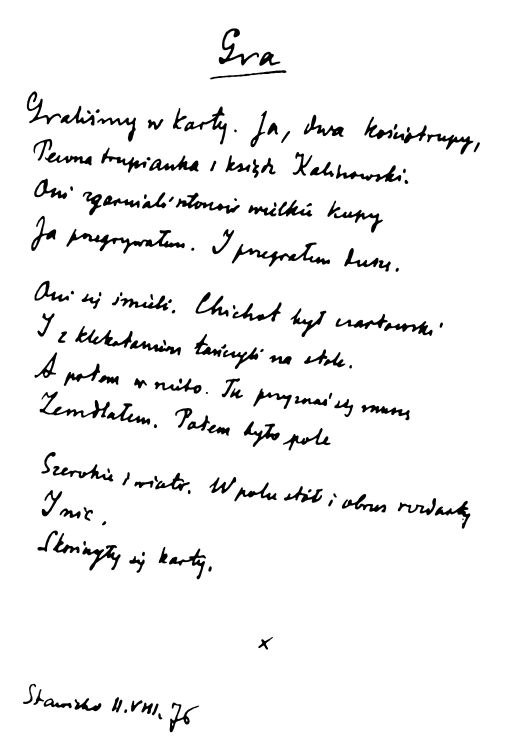 Gra
Graliśmy w karty. Ja, dwa kościotrupy,
Pewna trupianka i ksiądz Kalinowski.
Oni zgarniali słonów wielkie kupy
Ja przegrywałem. I przegrałem duszę.
Oni się śmieli. Chichot był czartowski
I z klekotaniem tańczyli na stole.
A potem w niebo. Tu przyznać się muszę
Zemdlałem. Potem było pole
Szerokie i wiatr. W polu stół i obrus rozdarty
I nic.
Skończyły się karty.
x
Stawisko 11.VIII.76